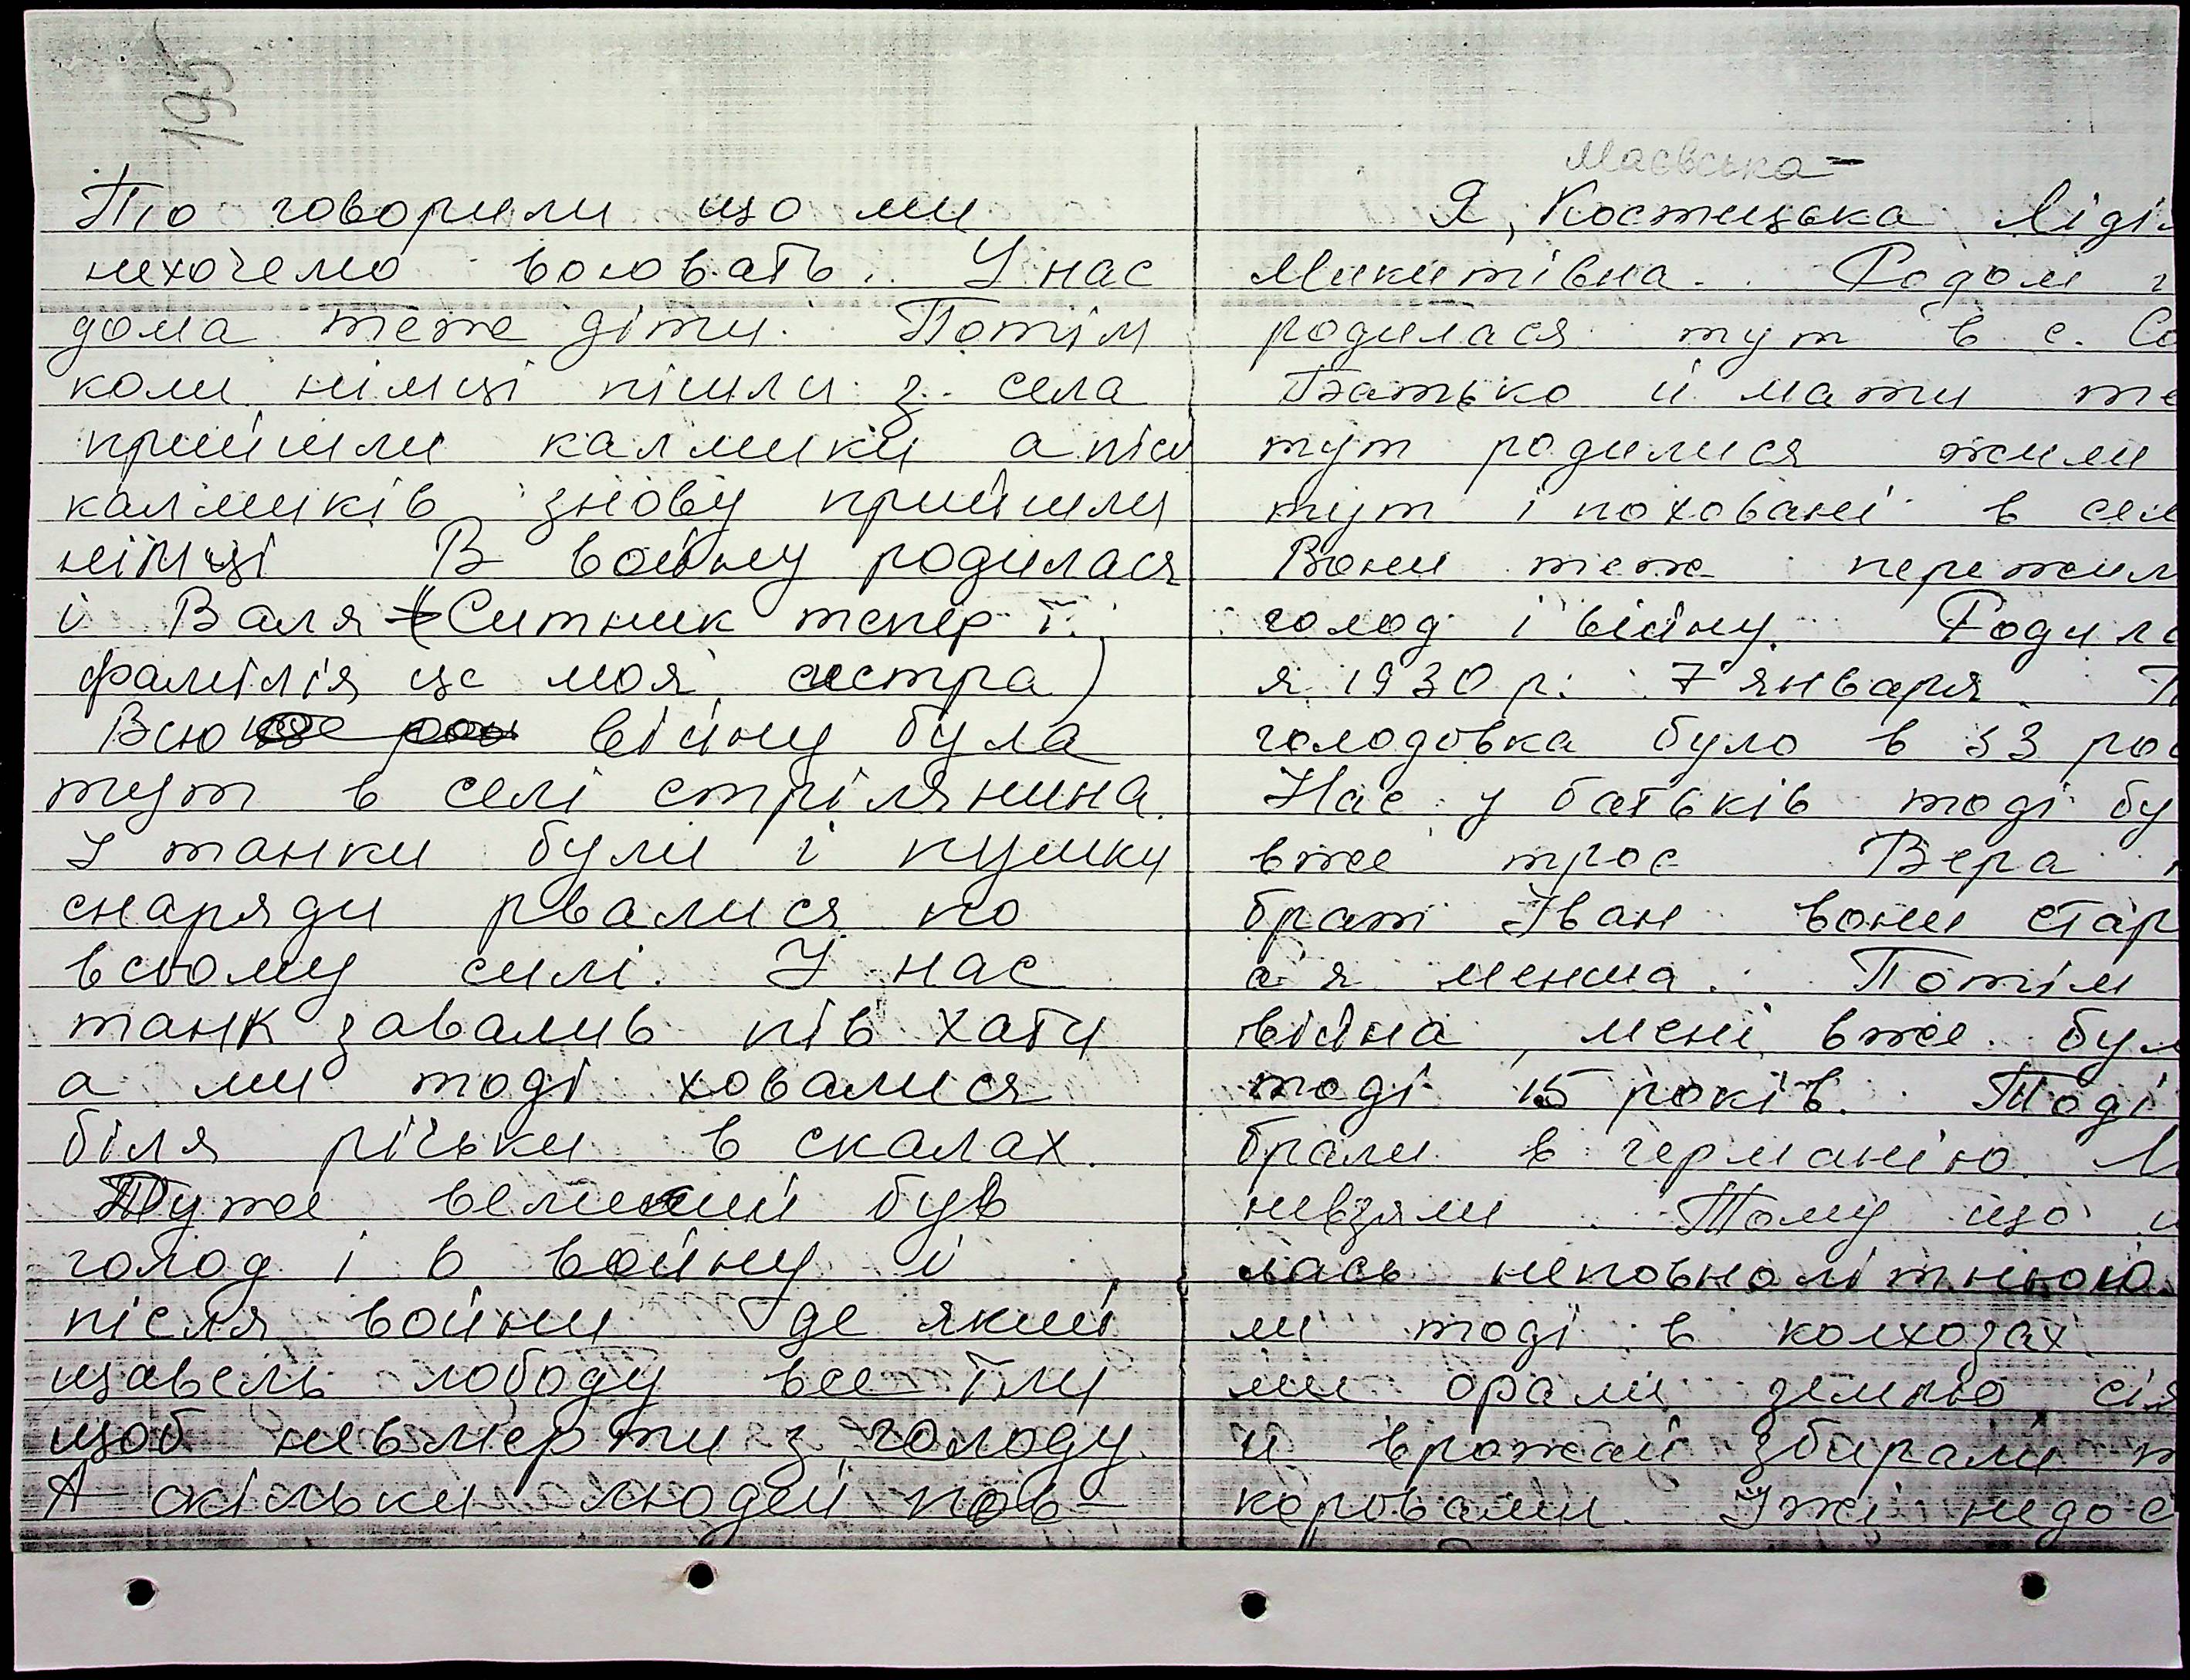 195
Тіо говорили що ми
нехочемо воювать. У нас
дома теже діти. Потім
коли німці пішли з села
прийшли калмики а písл
калмиків знову прийшли
німці В войну родилася
і Валя (Ситник тепер ї.
фамілія це моя сестра)
Всю війну була
тут в селі стрілянина.
У танки були і пушки
снаряди рвалися по
всьому силі. У нас
танк завалив пів хати
а ми тоді ховалися
біля річки в скалах.
Дуже великий був
голод і в войну й
після войни де який
щавель лободу все їли
щоб невмерти з голоду.
А скільки людей пов-
Маєвська-
Я, Костицька Ліді
Микитівна. Родом
родилася тут в с. Со
Батько й мати те
тут родилися жили
тут і поховані в сел
Вони теже пережил
голод і війну. Родила
я 1930 р. 7 января.
голодовка було в 33 ро
Нас у батьків тоді бу
вже троє Вера
брат Іван вони стар
а я менша. Потім
війна, мені вже бул
тоді 15 років. Тоді
брали в германію. М
невзяли. Тому що
лась неповнолітньою.
ми тоді в колхозах
ми орали землю сія
й врожай збирали
коровами. Їжі недос